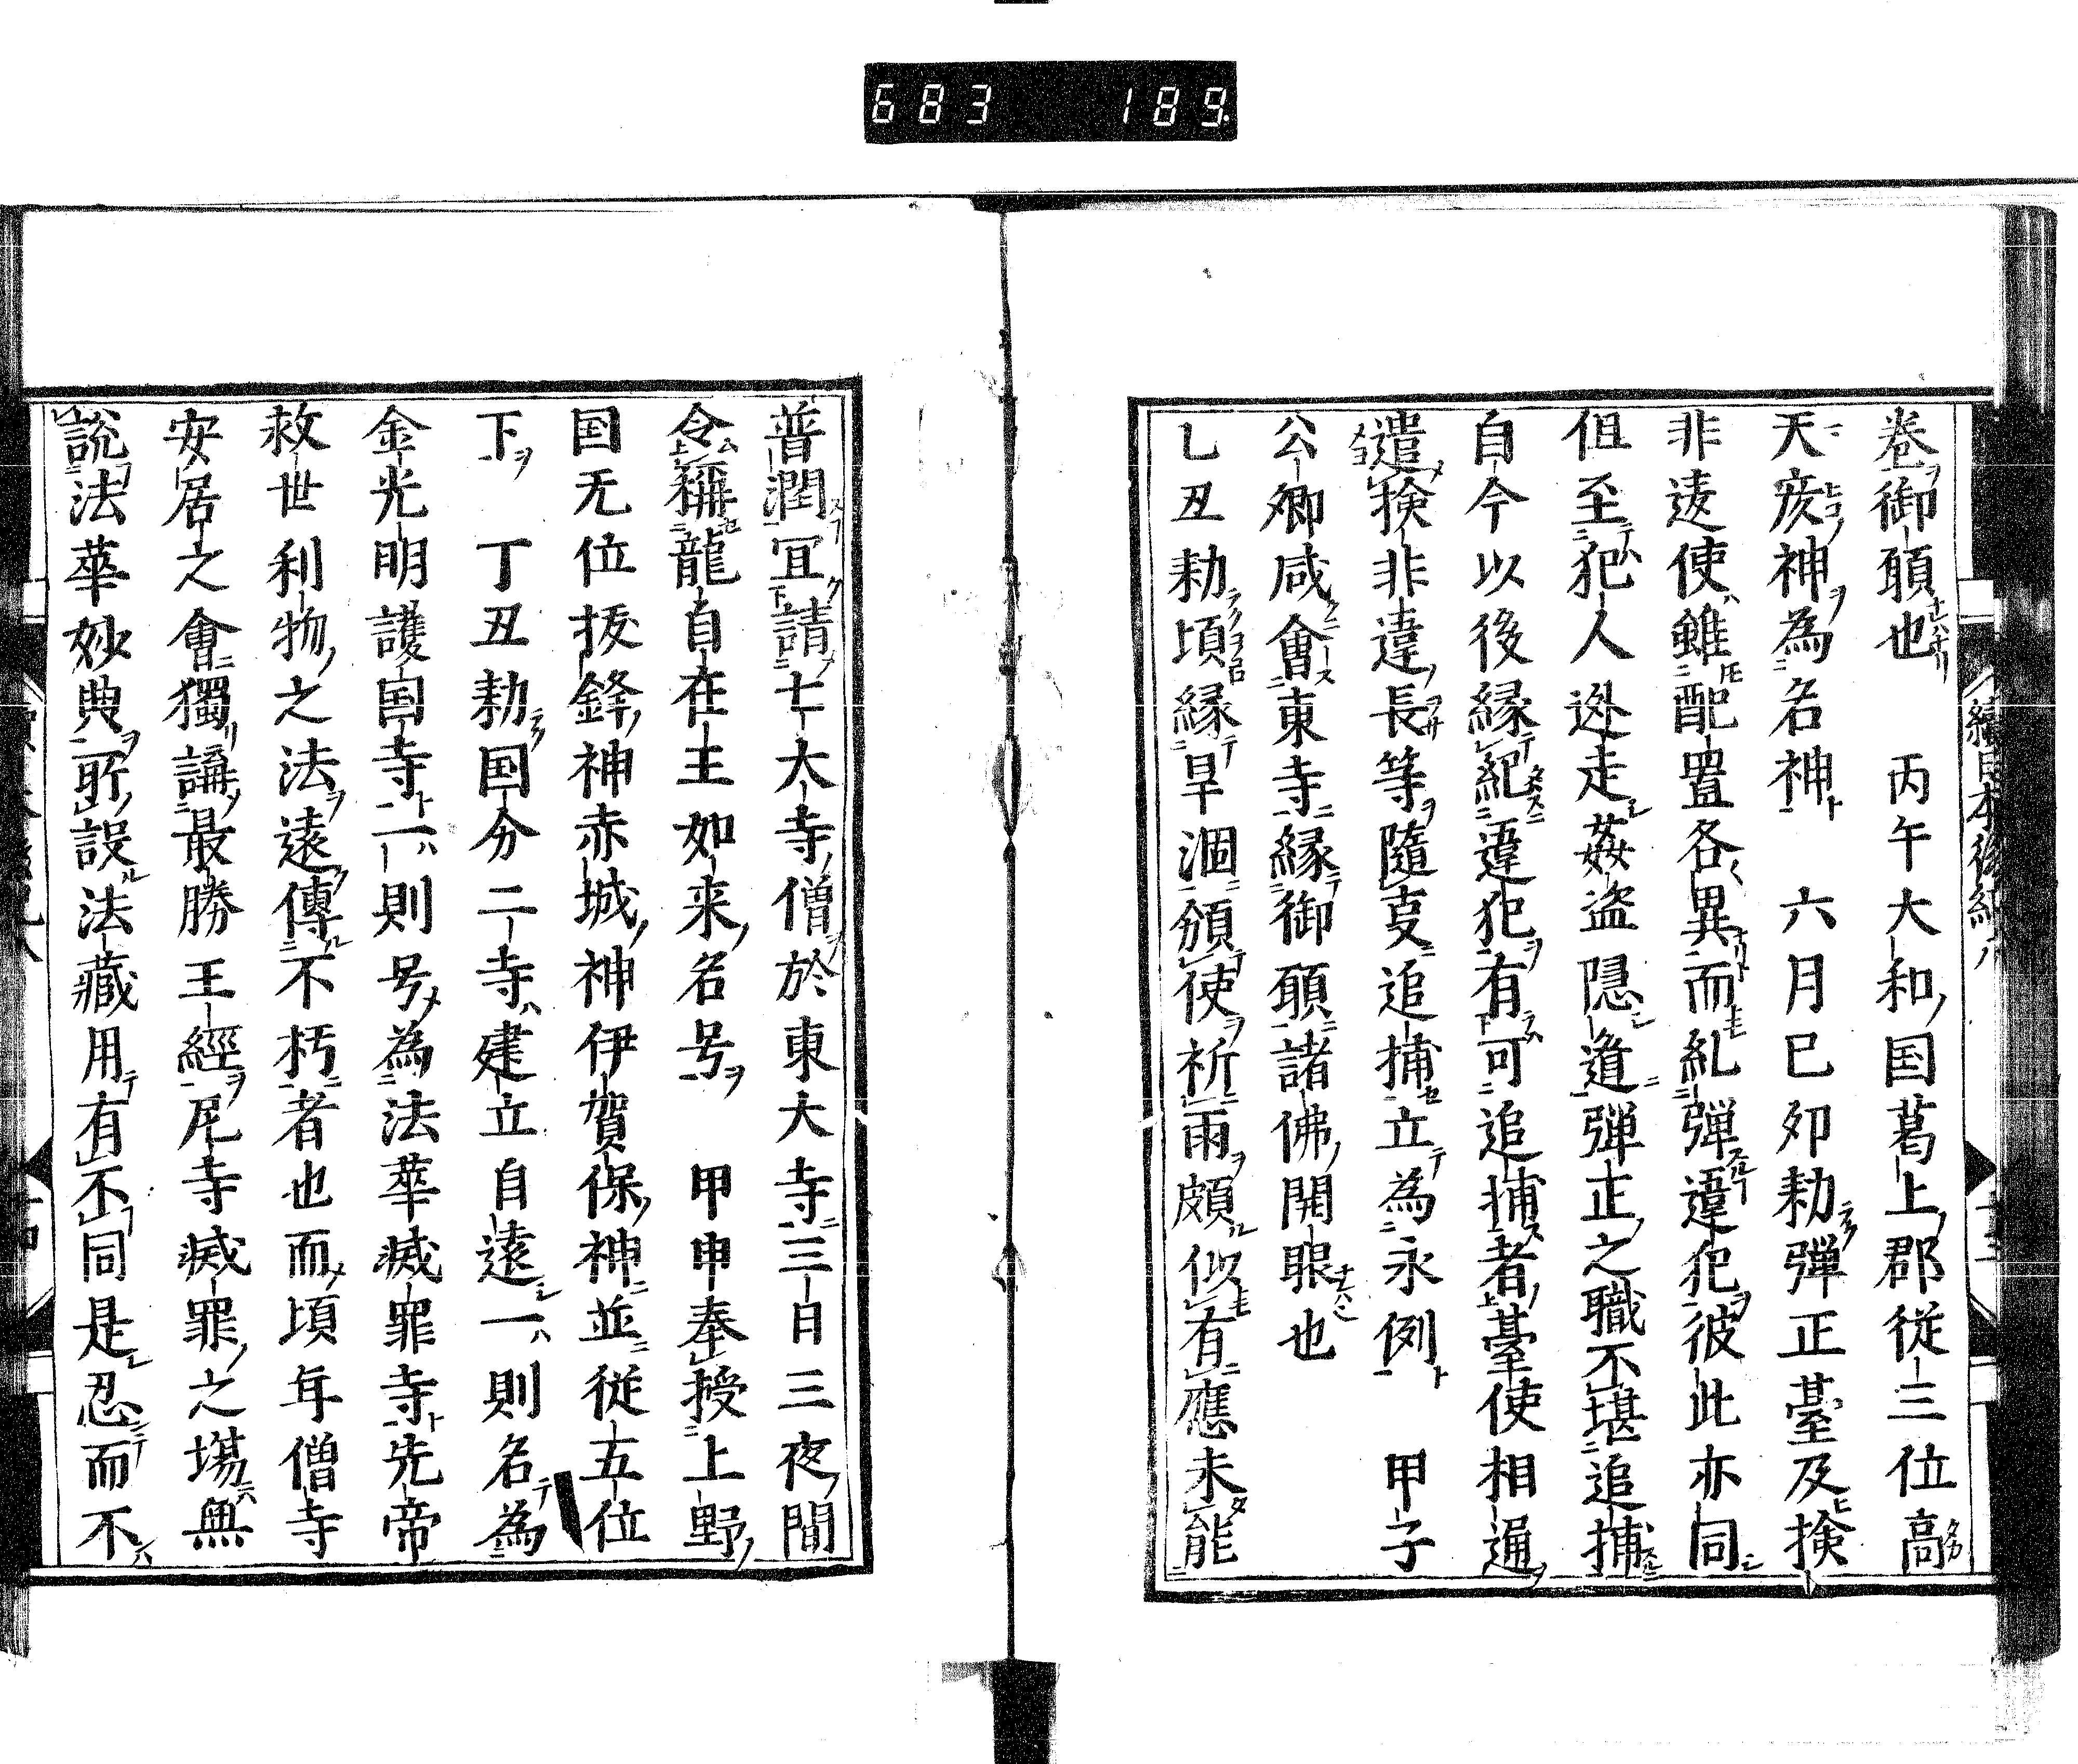 683 189
續日本後紀
卷御願也 丙午大和国葛上郡従三位高
天彦神為名神 六月己夘勅彈正臺及検
非違使雖配置各異而糺彈違犯彼此亦同
但至犯人迯走姦盗隠遁彈正之職不堪追捕
自今以後縁糺違犯有可追捕者臺使相通
遣検非違長等隨叓追捕立為永例 甲子
公卿咸會東寺縁御願諸佛開眼也
乙丑勅頃縁旱涸頒使祈雨頗似有應未能
普潤冝請七大寺僧於東大寺三日三夜間
令稱龍自在王如来名号 甲申奉授上野
国无位抜鋒神赤城神伊賀保神並従五位
下 丁丑勅国分二寺建立自遠一則名為
金光明護国寺一則号為法華滅罪寺先帝
救世利物之法遠傳不朽者也而頃年僧寺
安居之會獨講最勝王經尼寺滅罪之場無
説法華妙典所設法藏用有不同是忍而不